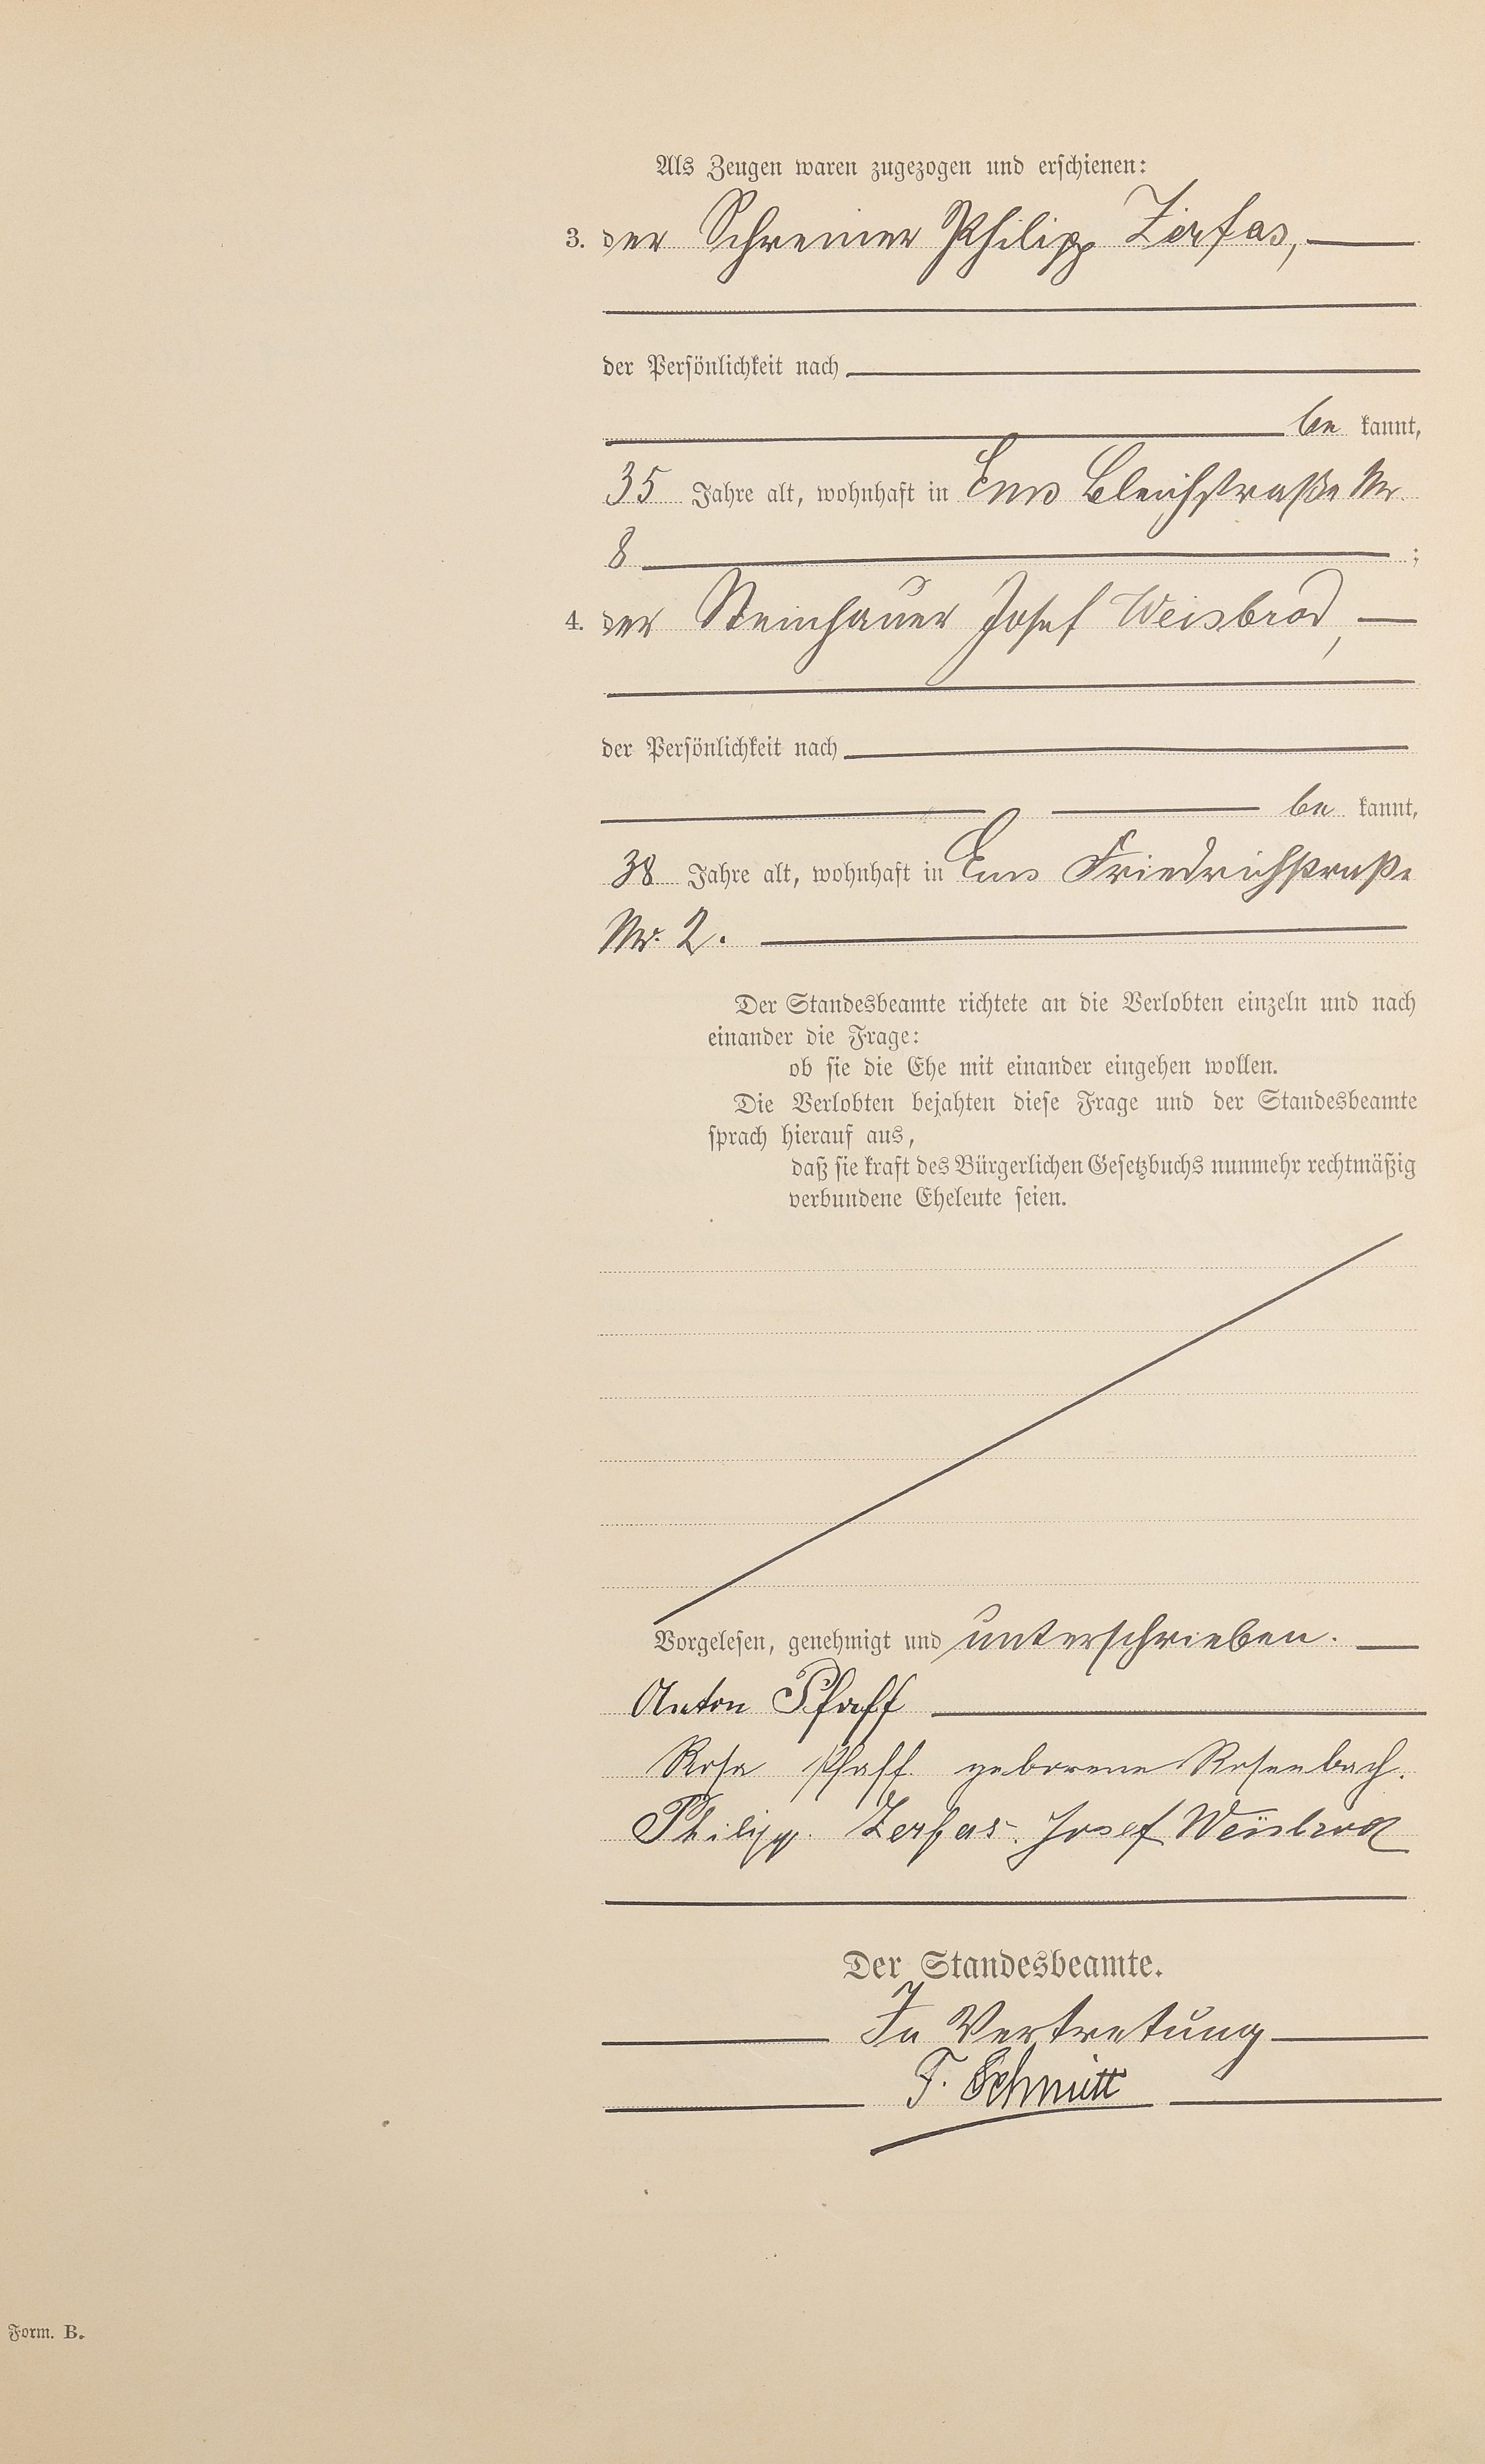 Als Zeugen waren zugezogen und erschienen:
3. der Schreiner Philipp Zerfas,
der Persönlichkeit nach
be kannt,
35 Jahre alt, wohnhaft in Ems Bleichstraße Nr.
8 ;
4. der Steinhauer Josef Weisbrod,
der Persönlichkeit nach
be kannt,
38 Jahre alt, wohnhaft in Ems Friedrichstraße
Nr. 2.
Der Standesbeamte richtete an die Verlobten einzeln und nach
einander die Frage:
ob sie die Ehe mit einander eingehen wollen.
Die Verlobten bejahten diese Frage und der Standesbeamte
sprach hierauf aus,
daß sie kraft des Bürgerlichen Gesetzbuchs nunmehr rechtmäßig
verbundene Eheleute seien.
Vorgelesen, genehmigt und unterschrieben.
Anton Pfaff
Rosa Pfaff. geborene Rosenbach.
Philipp. Zerfas. Josef Weisbrod
Der Standesbeamte.
In Vertretung
F. Schmitt
Form. B.